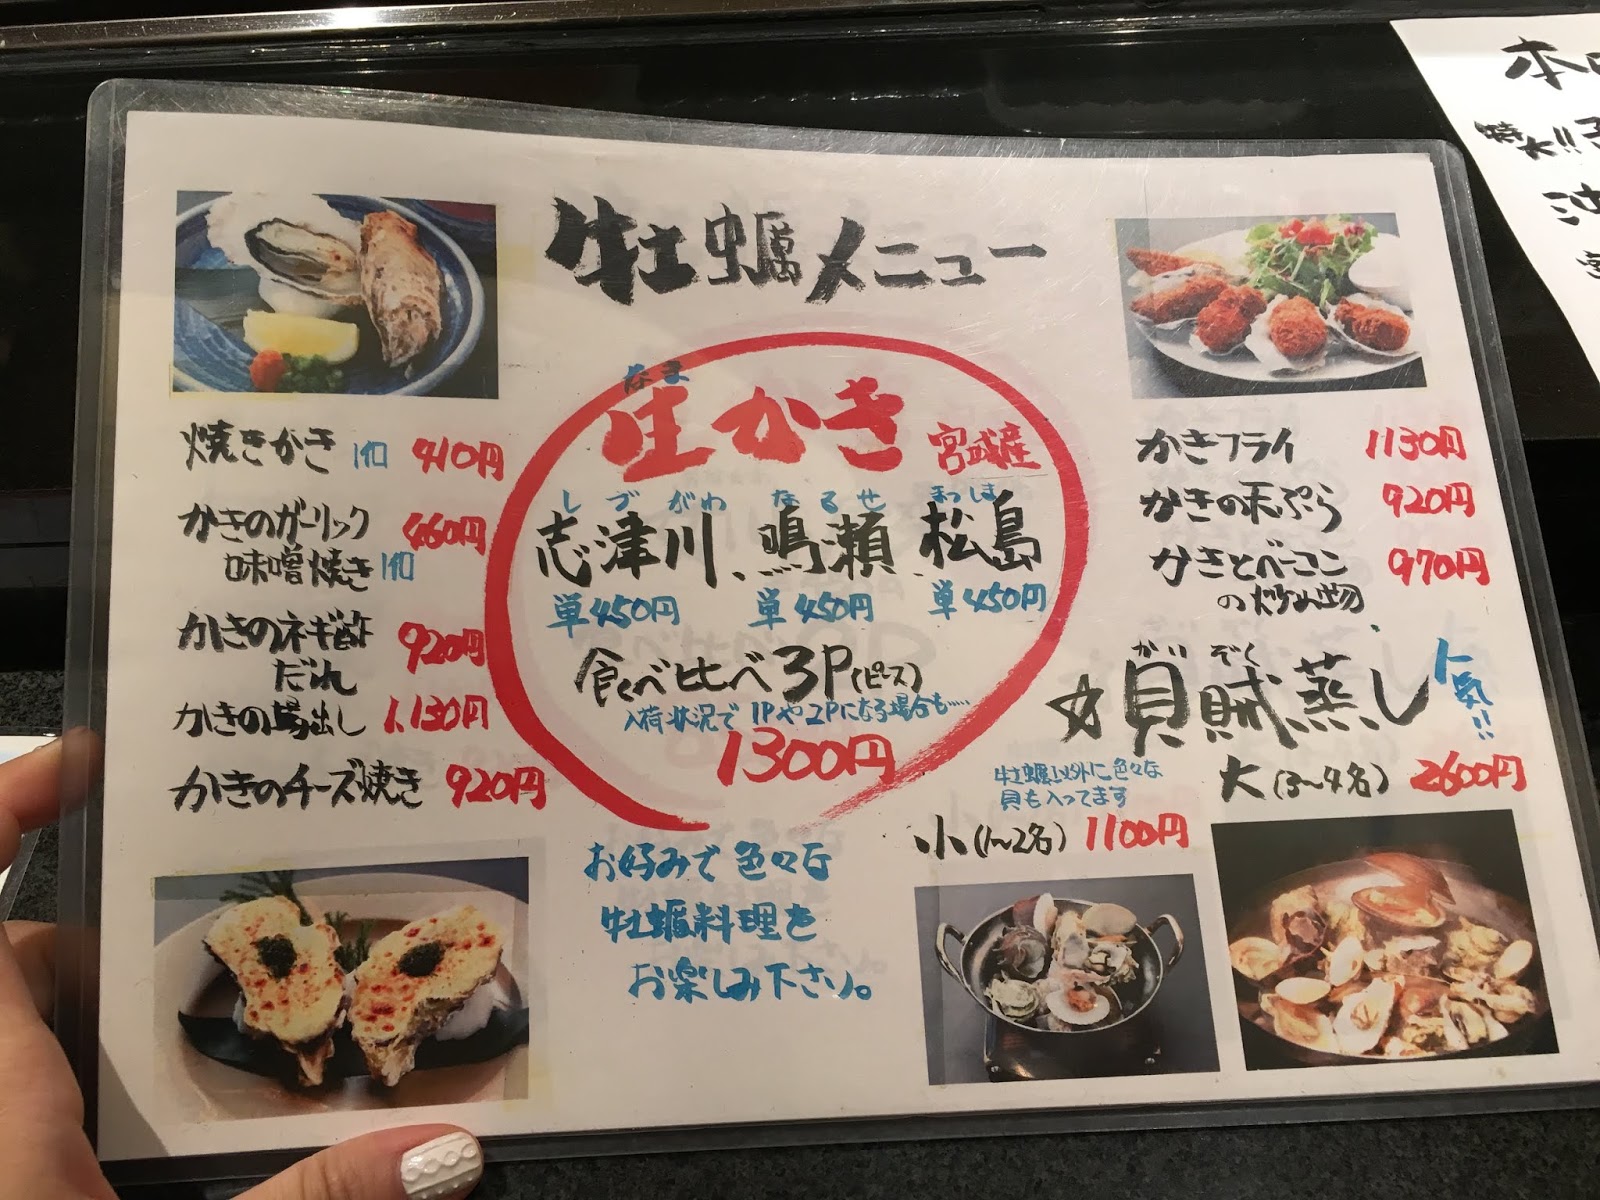 牡蠣メニュー
なま
生かき 宮城産
しづがわ なるせ まつしま
志津川、鳴瀬、松島
単450円 単450円 単450円
食べ比べ3P(ピース)
入荷状況で1Pや2Pになる場合も……
1300円
焼きかき 1個 410円
かきのガーリック 460円
味噌焼き 1個
かきのネギ酢 920円
だれ
かきの場出し 1,130円
かきのチーズ焼き 920円
かきフライ 1130円
かきの天ぷら 920円
かきとベーコン 970円
の炒め物
がいぞく
☆貝賊蒸し 人気!!
牡蠣以外に色々な
貝も入ってます
大(3〜4名) 2600円
小(1〜2名) 1100円
お好みで色々な
牡蠣料理を
お楽しみ下さい。
本日
特大!!